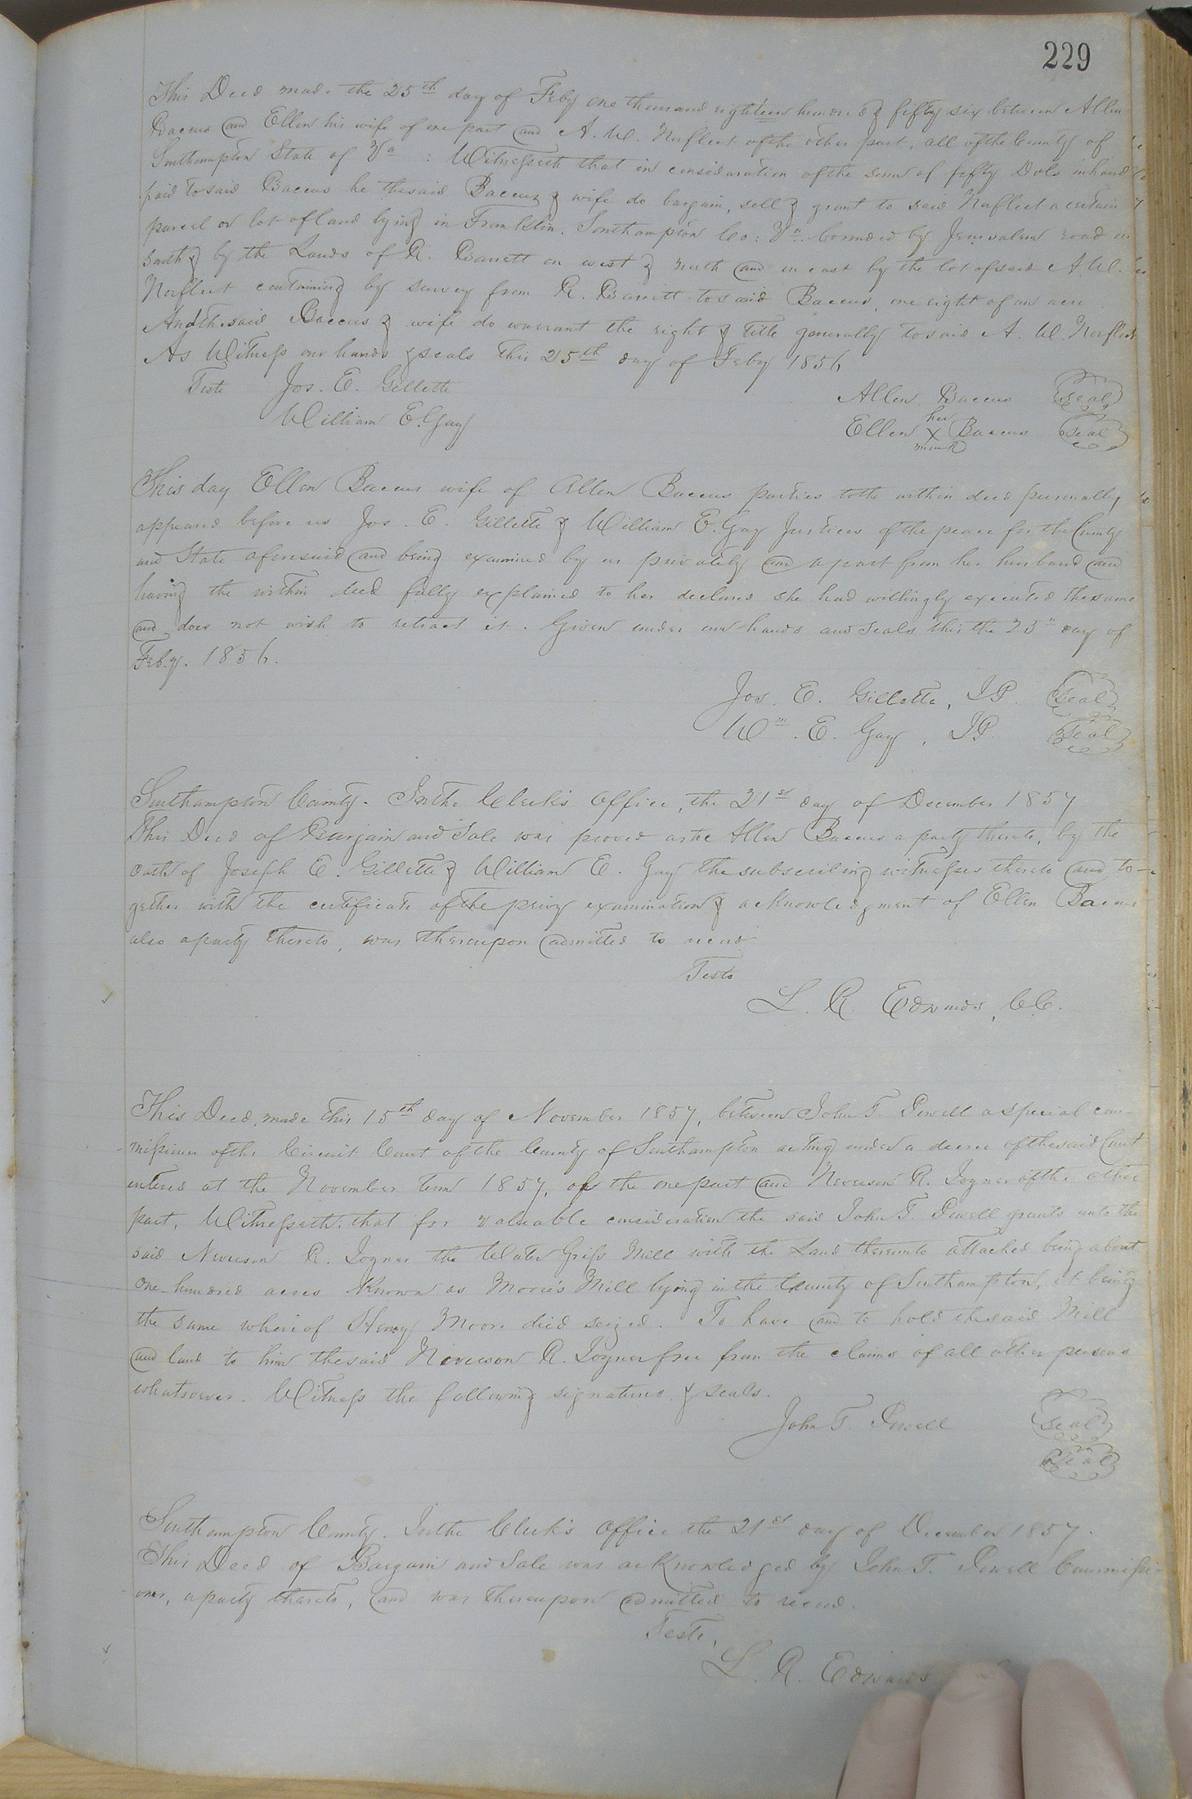 229
This Deed made the 25th day of Feby one thousand eighteen hundred & fifty six between Allen
Baccus and Ellen his wife of one part and A. W. Norfleet of the other part, all of the County of
Southampton State of Va : Witnesseth that in consideration of the sum of fifty Dols in hand
paid to said Baccus he the said Baccus & wife do bargain, sell & grant to said Norfleet a certain
parcel or lot of land lying in Franklin, Southampton Co: Va. bounded by Jerusalem road on
south & by the Lands of R. Barrett on west & north and on east by the lot of said A. W.
Norfleet containing by survey from R. Barrett to said Baccus, one eight of an acre
And the said Baccus & wife do warrant the right & title generally to said A. W. Norfleet
As Witness our hands & seals this 25th day of Feby 1856
Teste Jos. E. Gillette Allen Baccus Seal
William E. Gay Ellen her X mark Baccus Seal
This day Ellen Baccus wife of Allen Baccus parties to the within deed personally
appeared before us Jos. E. Gillette & William E. Gay Justices of the peace for the County
and State aforesaid and being examined by us privately and apart from her husband and
having the within deed fully explained to her declares she had willingly executed the same
and does not wish to retract it. Given under our hands and seals this the 25th day of
Feby. 1856.
Jos. E. Gillette, J.P. Seal
Wm. E. Gay, J.P. Seal
Southampton County. In the Clerk's Office, the 21st day of December 1857
This Deed of Bargain and Sale was proved as to Allen Baccus a party thereto, by the
oath of Joseph E. Gillette & William E. Gay the subscribing witnesses thereto and to-
gether with the certificate of the privy examination & acknowledgment of Ellen Baccus
also a party thereto, was thereupon admitted to record
Teste
L. R. Edwards, C.C.
This Deed, made this 15th day of November 1857, between John T. Sewell a special com-
missioner of the Circuit Court of the County of Southampton acting under a decree of the said Court
entered at the November term 1857, of the one part and Nevison R. Joyner of the other
part, Witnesseth: that for valuable consideration the said John T. Sewell grants unto the
said Nevison R. Joyner the Water Griss Mill with the Land thereunto attached being about
one hundred acres known as Moore's Mill lying in the County of Southampton, it being
the same whereof Henry Moore died seized. To have and to hold the said Mill
and land to him the said Nevison R. Joyner free from the claims of all other persons
whatsoever. Witness the following signatures & seals.
John T. Sewell Seal
Seal
Southampton County. In the Clerk's Office the 21st day of December 1857.
This Deed of Bargain and Sale was acknowledged by John T. Sewell Commissi-
oner, a party thereto, and was thereupon admitted to record.
Teste,
L. R. Edwards